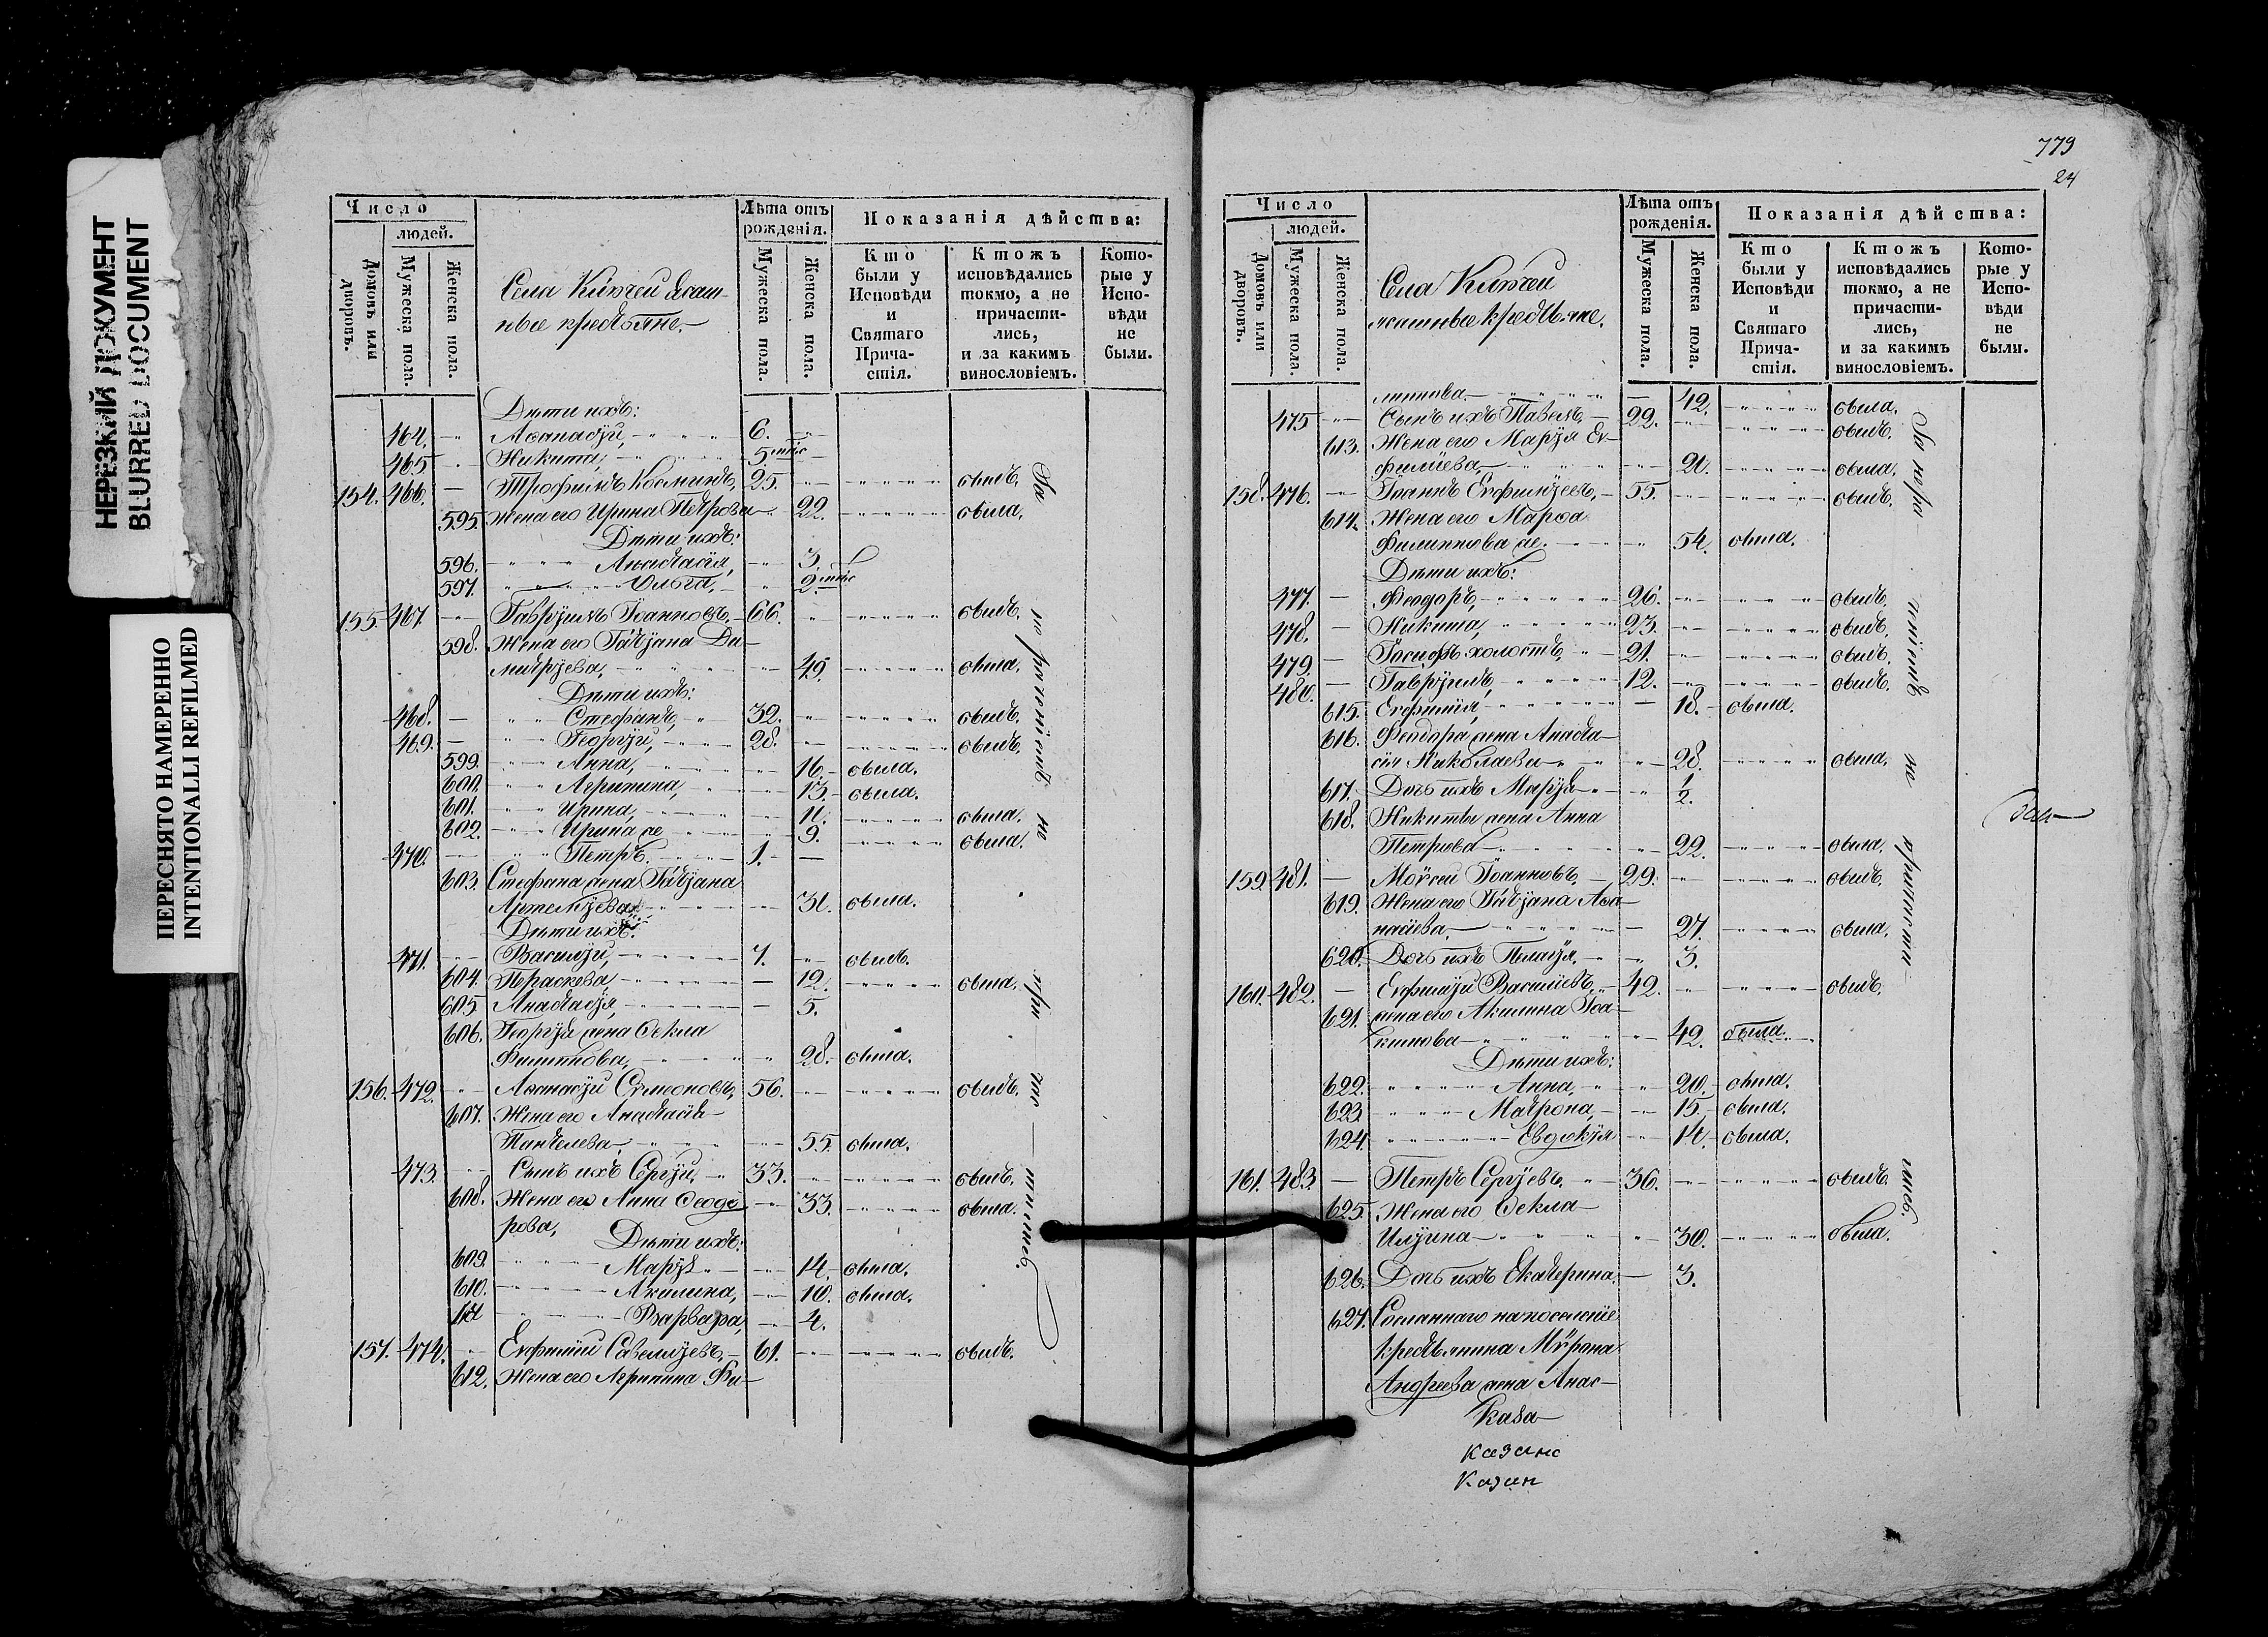 НЕРЕЗКИЙ ДОКУМЕНТ
BLURRED DOCUMENT
ПЕРЕСНЯТО НАМЕРЕННО
INTENTIONALLI REFILMED
Число
людей.
Домовъ или дворовъ.
Мужеска пола.
Женска пола.
Села Ключей ясаш-
ные крестьяне.
Лѣта отъ рожденія.
Мужеска пола.
Женска пола.
Показанія дѣйства:
Кто были у Исповѣди и Святаго Прича-стія.
Ктожъ исповѣдались токмо, а не причасти-лись, и за какимъ винословіемъ.
Кото-рые у Испо-вѣди не были.
Дѣти ихъ:
464. Аѳанасій, 6.
465. Никита, 5
154. 466. Трофимъ Косминъ, 25. былъ.
595. Жена его Ирина Петрова 22. была.
Дѣти ихъ:
596. Анастасія, 3.
597. Ольга, 2
155. 467. Гавріилъ Іоанновъ, 66. былъ.
598. Жена его Татіана Ди-
митріева, 49. была.
Дѣти ихъ:
468. Стефанъ, 32. былъ.
469. Георгій, 28. былъ.
599. Анна, 16. была.
600. Агрипина, 13. была.
601. Ирина, 11. была.
602. Ирина же 9. была.
470. Петръ. 1.
603. Стефана жена Татіана
Артеміева 31. была.
Дѣти ихъ:
471. Василій, 7. былъ.
604. Параскева, 12. была.
605 Анастасія, 5.
606. Георгія жена Ѳекла
Филиппова, 28. была.
156. 472. Аѳанасій Симеоновъ, 56. былъ.
607. Жена его Анастасія
Пантелева, 55. была.
473. Сынъ ихъ Сергій, 33. былъ.
608. Жена его Анна Ѳеодо 33. была.
рова,
Дѣти ихъ:
609. Марія 14. была.
610. Акилина, 10. была.
611 Варвара, 4.
157. 474. Евфимій Савеліевъ, 61. былъ.
612. Жена его Агрипина Фи-
За не рачениемъ не при час тились.
779
24
Число
людей.
Домовъ или дворовъ.
Мужеска пола.
Женска пола.
Села Ключей
ясашные крестьяне.
Лѣта отъ рожденія.
Мужеска пола.
Женска пола.
Показанія дѣйства:
Кто были у Исповѣди и Святаго Прича-стія.
Ктожъ исповѣдались токмо, а не причасти-лись, и за какимъ винословіемъ.
Кото-рые у Испо-вѣди не были.
липпова 42. была.
475 Сынъ ихъ Павелъ, 22. былъ.
613. Жена его Марія Ев-
филіева, 20. была.
158. 476. Іоаннъ Евфиміевъ, 55. былъ.
614. Жена его Марѳа
Филиппова же. 54. была.
Дѣти ихъ:
477. Ѳеодоръ, 26. былъ.
478. Никита, 23. былъ.
479. Іосифъ холостъ, 21. былъ.
480. Гавріилъ, 12. былъ.
615. Евфимія, 18. была.
616. Ѳеодора жена Анаста-
сія Николаева 28. была.
617. Дочь ихъ Марія 1/2.
618. Никиты жена Анна
Петрова 22. была.
159. 481. Моѵсей Іоанновъ. 29. былъ.
619. Жена его Татіана Аѳа-
насіева, 27. была.
620. Дочь ихъ Пелагія. 3.
160. 482. Евфимій Василіевъ, 42. былъ.
621. жена его Акилина Іоа-
кимова 42. была.
Дѣти ихъ:
622. Анна, 20. была.
623. Матрона, 15. была.
624. Евдокія 14. была.
161. 483. Петръ Сергіевъ. 36. былъ.
625. Жена его Ѳекла
Иліина 30. была.
626. Дочь ихъ Екатерина, 3.
627. Сосланнаго на поселеніе
крестьянина Мѵрона
Андреева жена Анас-
каза
казанс
Казан
За нера чениемъ не причасти лись.